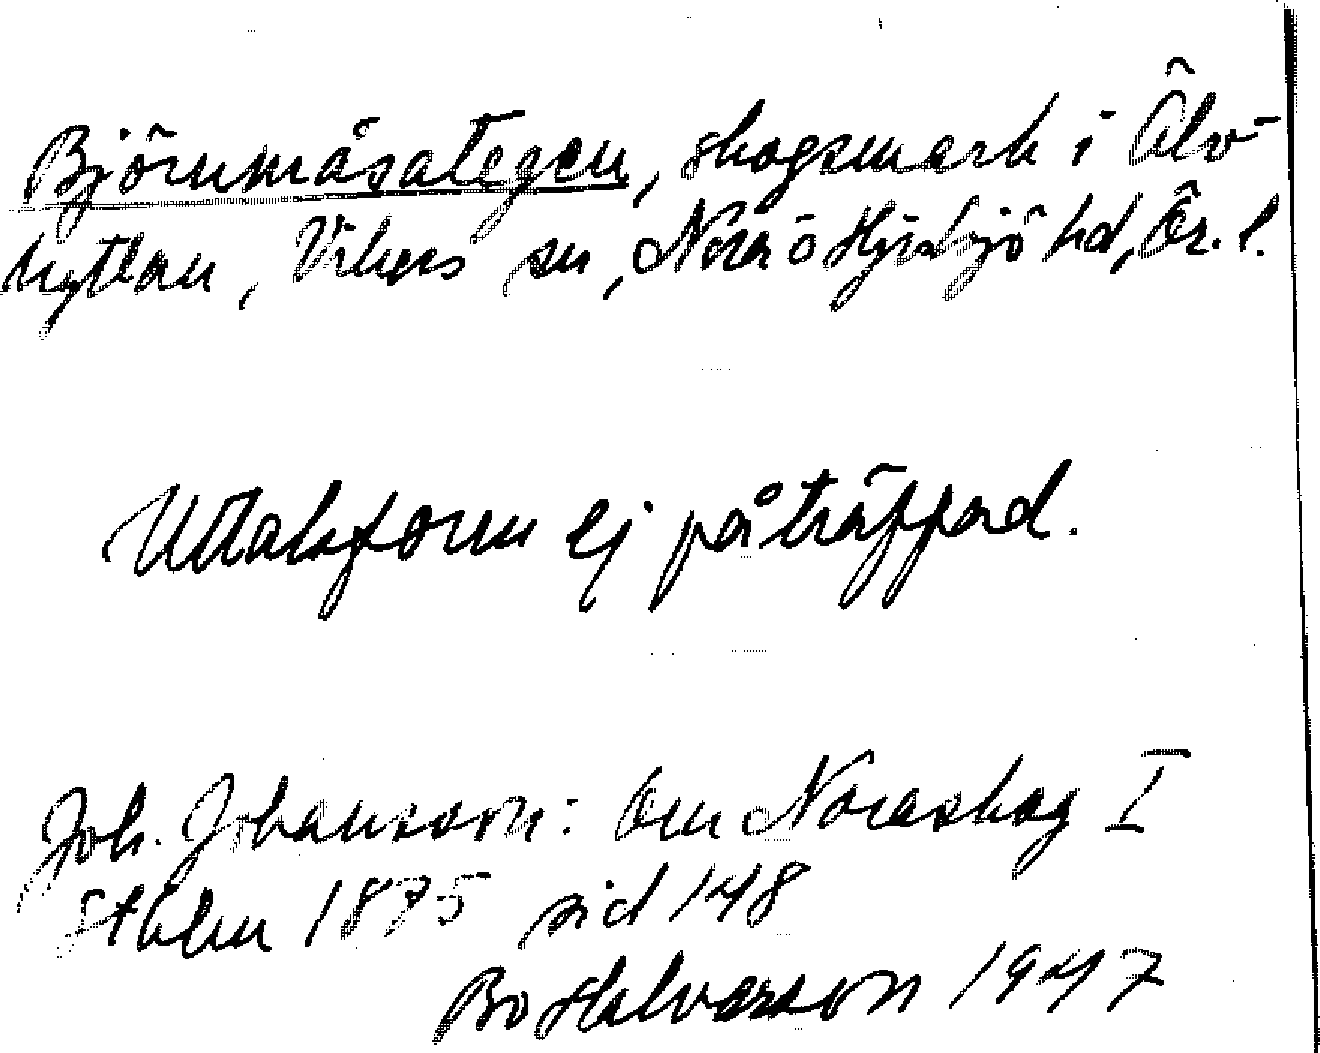 Björnmåsategen, skogsmark i Älv-
hyttan, Vikers sn, Nora o Hjulsjö hd, Ör. l.
Uttalsform ej påträffad.
Joh. Johansson: Om Noraskog I
Sthlm 1875 sid 148
Bo Halvarsson 1947